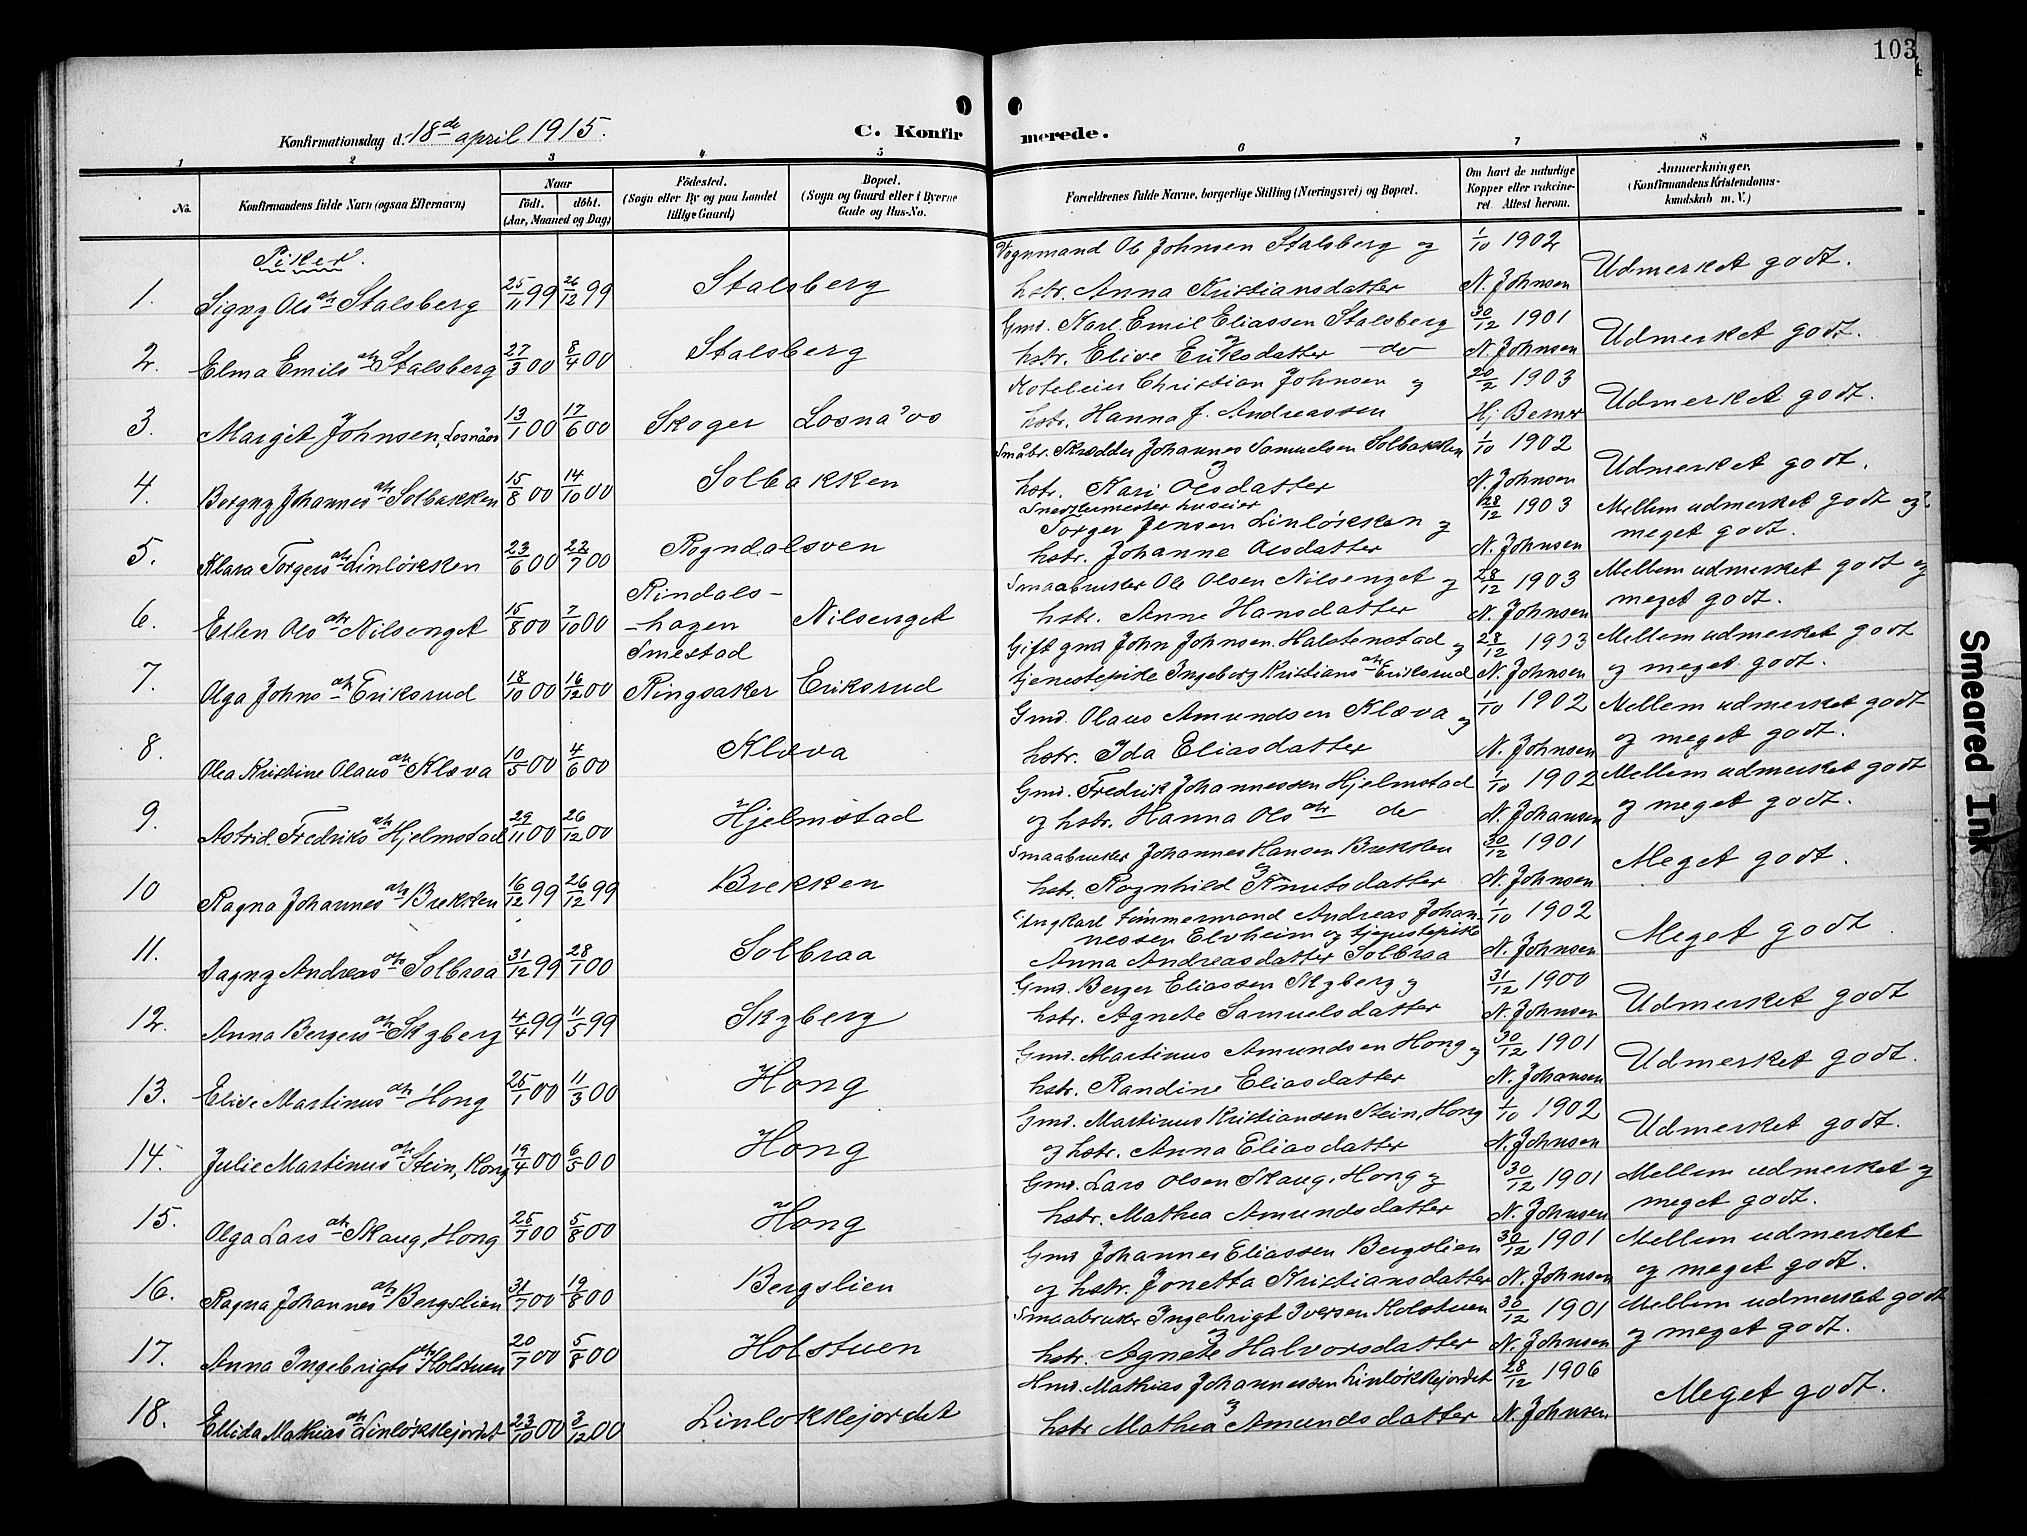 103
Konfirmationsdag d. 18de april 1915.
C. Konfirmerede.
1 2 3 4 5 6 7 8
No.
Konfirmandens fulde Navn (ogsaa Efternavn)
Naar
födt. döbt.
(Aar, Maaned og Dag)
Födested.
(Sogn eller By og paa Landet
tillige Gaard)
Bopæl.
(Sogn og Gaard eller i Byerne
Gade og Hus-No.
Forældrenes fulde Navne, borgerlige Stilling (Næringsvei) og Bopæl.
Om havt de naturlige
Kopper eller vakcine-
ret. Attest herom.
Anmerkninger.
(Konfirmandens Kristendoms-
kundskab m. V.)
Piker.
1. Signy Olsdtr Stalsberg 25/11 99 26/12 99 Stalsberg
Vognmand Ole Johnsen Stalsberg og
hstr. Anna Kristiansdatter
1/10 1902
N. Johnsen
Udmerket godt.
2. Elma Emilsdtr Stalsberg 27/3 00 8/4 00 Stalsberg
Gmd. Karl Emil Eliassen Stalsberg
og
hstr. Elive Eriksdatter do
30/12 1901
N. Johnsen
Udmerket godt.
3. Margit Johnsen, Losnäos 13/1 00 17/6 00 Skoger Losna'os
Hoteleier Christian Johnsen og
hstr. Hanna J. Andreassen
20/2 1903
Hj. Berner
Udmerket godt.
4. Borgny Johannesdtr Solbakken 15/8 00 14/10 00 Solbakken
Småbr. Skrædder Johannes Samuelsen Solbakken
og
hstr. Kari Olsdatter
1/10 1902
N. Johnsen
Udmerket godt.
5. Klara Torgersdtr Linløkken 23/6 00 22/7 00 Rogndalsven
Snedkermester huseier
Torger Jensen Linløkken og
hstr. Johanne Olsdatter
28/12 1903
N. Johnsen
Mellem udmerket godt og
meget godt.
6. Ellen Olsdtr Nilsenget 15/8 00 7/10 00 Rindals-
-hagen Nilsenget
Smaabruker Ole Olsen Nilsenget og
hstr. Anne Hansdatter
28/12 1903
N. Johnsen
Mellem udmerket godt og
meget godt.
7. Olga Johnsdtr Eriksrud 18/10 00 16/12 00 Smestad
Ringsaker Eriksrud
Gift gmd John Johnsen Halstenstad og
tjenestepike Ingeborg Kristiansdtr Eriksrud
28/12 1903
N. Johnsen
Mellem udmerket godt
og meget godt.
8. Olea Kristine Olausdtr Klæva 10/5 00 4/6 00 Klæva
Gmd. Olaus Amundsen Klæva og
hstr. Ida Eliasdatter
1/10 1902
N. Johnsen
Mellem udmerket godt
og meget godt.
9. Astrid Fredriksdtr Hjelmstad 29/11 00 26/12 00 Hjelmstad
Gmd. Fredrik Johannessen Hjelmstad
og hstr. Hanna Olsdtr do
1/10 1902
N. Johansen
Mellem udmerket godt
og meget godt.
10 Ragna Johannesdtr Brekken 16/12 99 26/12 99 Brekken
Smaabruker Johannes Hansen Brekken
og
hstr. Rognhild Knutsdatter
30/12 1901
N. Johnsen
Meget godt.
11. Dagny Andreasdtr Solbraa 31/12 99 28/1 00 Solbraa
Ungkarl tømmermand Andreas Johan-
nessen Elvheim og tjenestepike
Anna Andreasdatter Solbraa
1/10 1902
N. Johnsen
Meget godt.
12. Anna Bergersdtr Skyberg 4/4 99 11/5 99 Skyberg
Gmd. Berger Eliassen Skyberg og
hstr. Agnete Samuelsdatter
31/12 1900
N. Johnsen
Udmerket godt
13. Elive Martinusdtr Hong 25/1 00 11/3 00 Hong
Gmd. Martinus Amundsen Hong og
hstr. Randine Eliasdatter
30/12 1901
N. Johansen
Udmerket godt.
14. Julie Martinusdtr Stein, Hong 19/4 00 6/5 00 Hong
Gmd. Martinus Kristiansen Stein, Hong
og hstr. Anna Eliasdatter
1/10 1902
N. Johnsen
Udmerket godt.
15. Olga Larsdtr Skaug, Hong 25/7 00 5/8 00 Hong
Gmd. Lars Olsen Skaug, Hong og
hstr. Mathea Amundsdatter
30/12 1901
N. Johnsen
Mellem udmerket og
meget godt.
16. Ragna Johannesdtr Bergslien 31/7 00 19/8 00 Bergslien
Gmd Johannes Eliassen Bergslien
og hstr. Jonetta Kristiansdatter
30/12 1901
N. Johnsen
Mellem udmerket
og meget godt.
17. Anna Ingebrigtsdtr Holstuen 20/7 00 5/8 00 Holstuen
Smaabruker Ingebrigt Iversen Holstuen
og
hstr. Agnete Halvorsdatter
30/12 1901
N. Johnsen
Mellem udmerket godt
og meget godt.
18. Ellida Mathiasdtr Linløkkejordet 23/10 00 3/12 00 Linløkkejordet
Hmd. Mathias Johannessen Linløkkejordet
og
hstr Mathea Amundsdatter
28/12 1906
N. Johnsen
Meget godt.
Smeared Ink